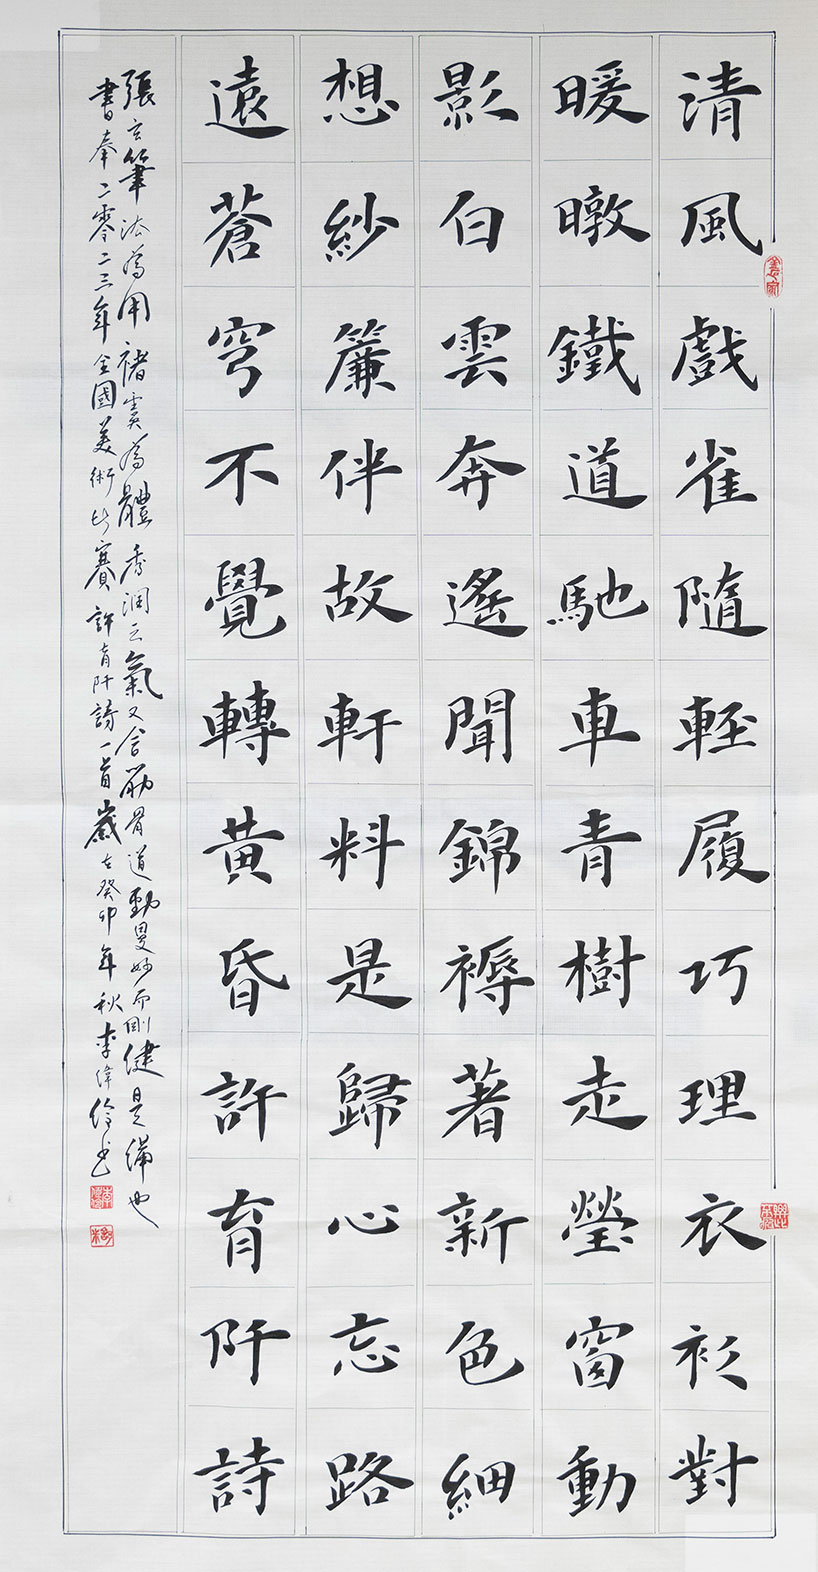 清風戲雀隨輕履巧理衣衫對
暖暾鐵道馳車青樹走瑩窗動
影白雲奔遙聞錦褥著新色細
想紗簾伴故軒料是歸心忘路
遠蒼穹不覺轉黃昏許育阡詩
張玄筆法為用褚虞為體秀潤之氣又含筋骨道勁曼妙而剛健是備也
書奉二零二三年全國美術比賽許育阡詩一首歲在癸卯年秋李偉伶書